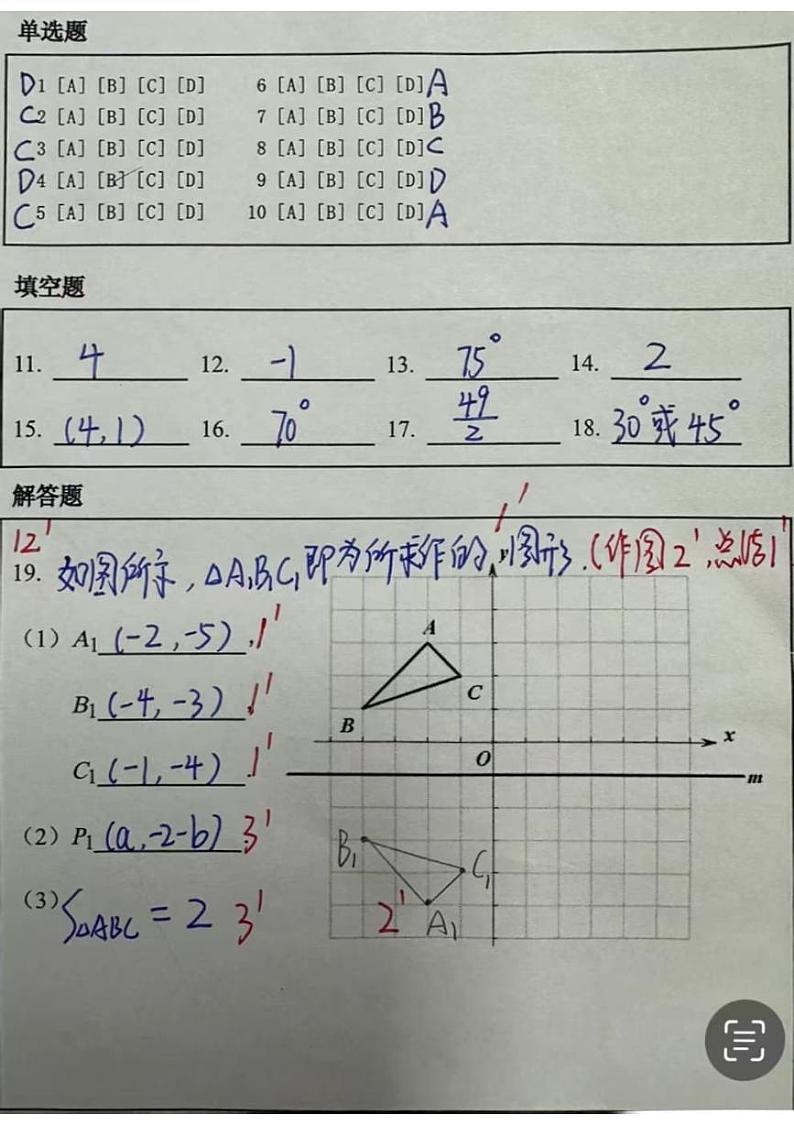 单选题
D 1 [A] [B] [C] [D] 6 [A] [B] [C] [D] A
C 2 [A] [B] [C] [D] 7 [A] [B] [C] [D] B
C 3 [A] [B] [C] [D] 8 [A] [B] [C] [D] C
D 4 [A] [B] [C] [D] 9 [A] [B] [C] [D] D
C 5 [A] [B] [C] [D] 10 [A] [B] [C] [D] A
填空题
11. 4 12. -1 13. 75° 14. 2
15. (4,1) 16. 70° 17. 49/2 18. 30°或45°
解答题
12' 1'
19. 如图所示,△A₁B₁C₁即为所求作的图形.(作图2',点结1'
y
(1) A₁ (-2,-5). 1'
A
B₁ (-4,-3). 1'
C
B
C₁ (-1,-4). 1'
x
O
m
(2) P₁ (a,-2-b) 3'
B₁
C₁
(3) S△ABC = 2 3'
2' A₁